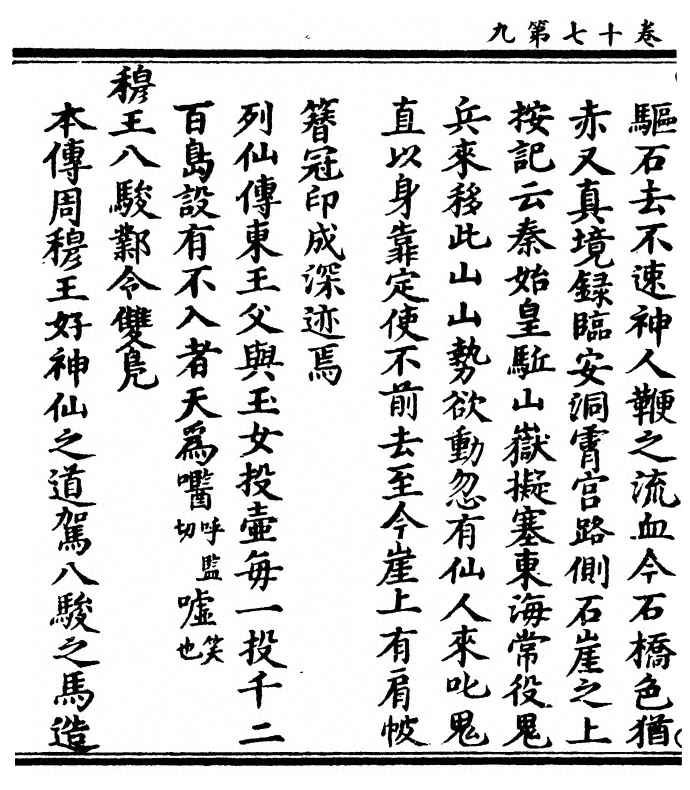 卷十七第九
驅石去不速神人鞭之流血今石橋色猶
赤又真境録臨安洞霄宫路側石崖之上
按記云秦始皇駈山嶽擬塞東海常役鬼
兵來移此山山勢欲動忽有仙人來叱鬼
直以身靠定使不前去至今崖上有肩帔
簮冠印成深迹焉
列仙傳東王父與玉女投壷毎一投千二
百島設有不入者天爲㘔呼監切嘘笑也
穆王八駿鄴令雙鳬
本傳周穆王好神仙之道駕八駿之馬造